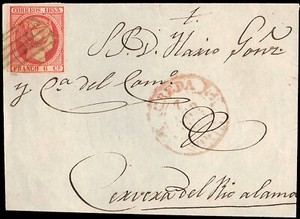 CORREOS 1853
FRANCO 6 Cs
S.P.D. Ilario Gonz
y Ca del Com.o
Cervera del Rio alama